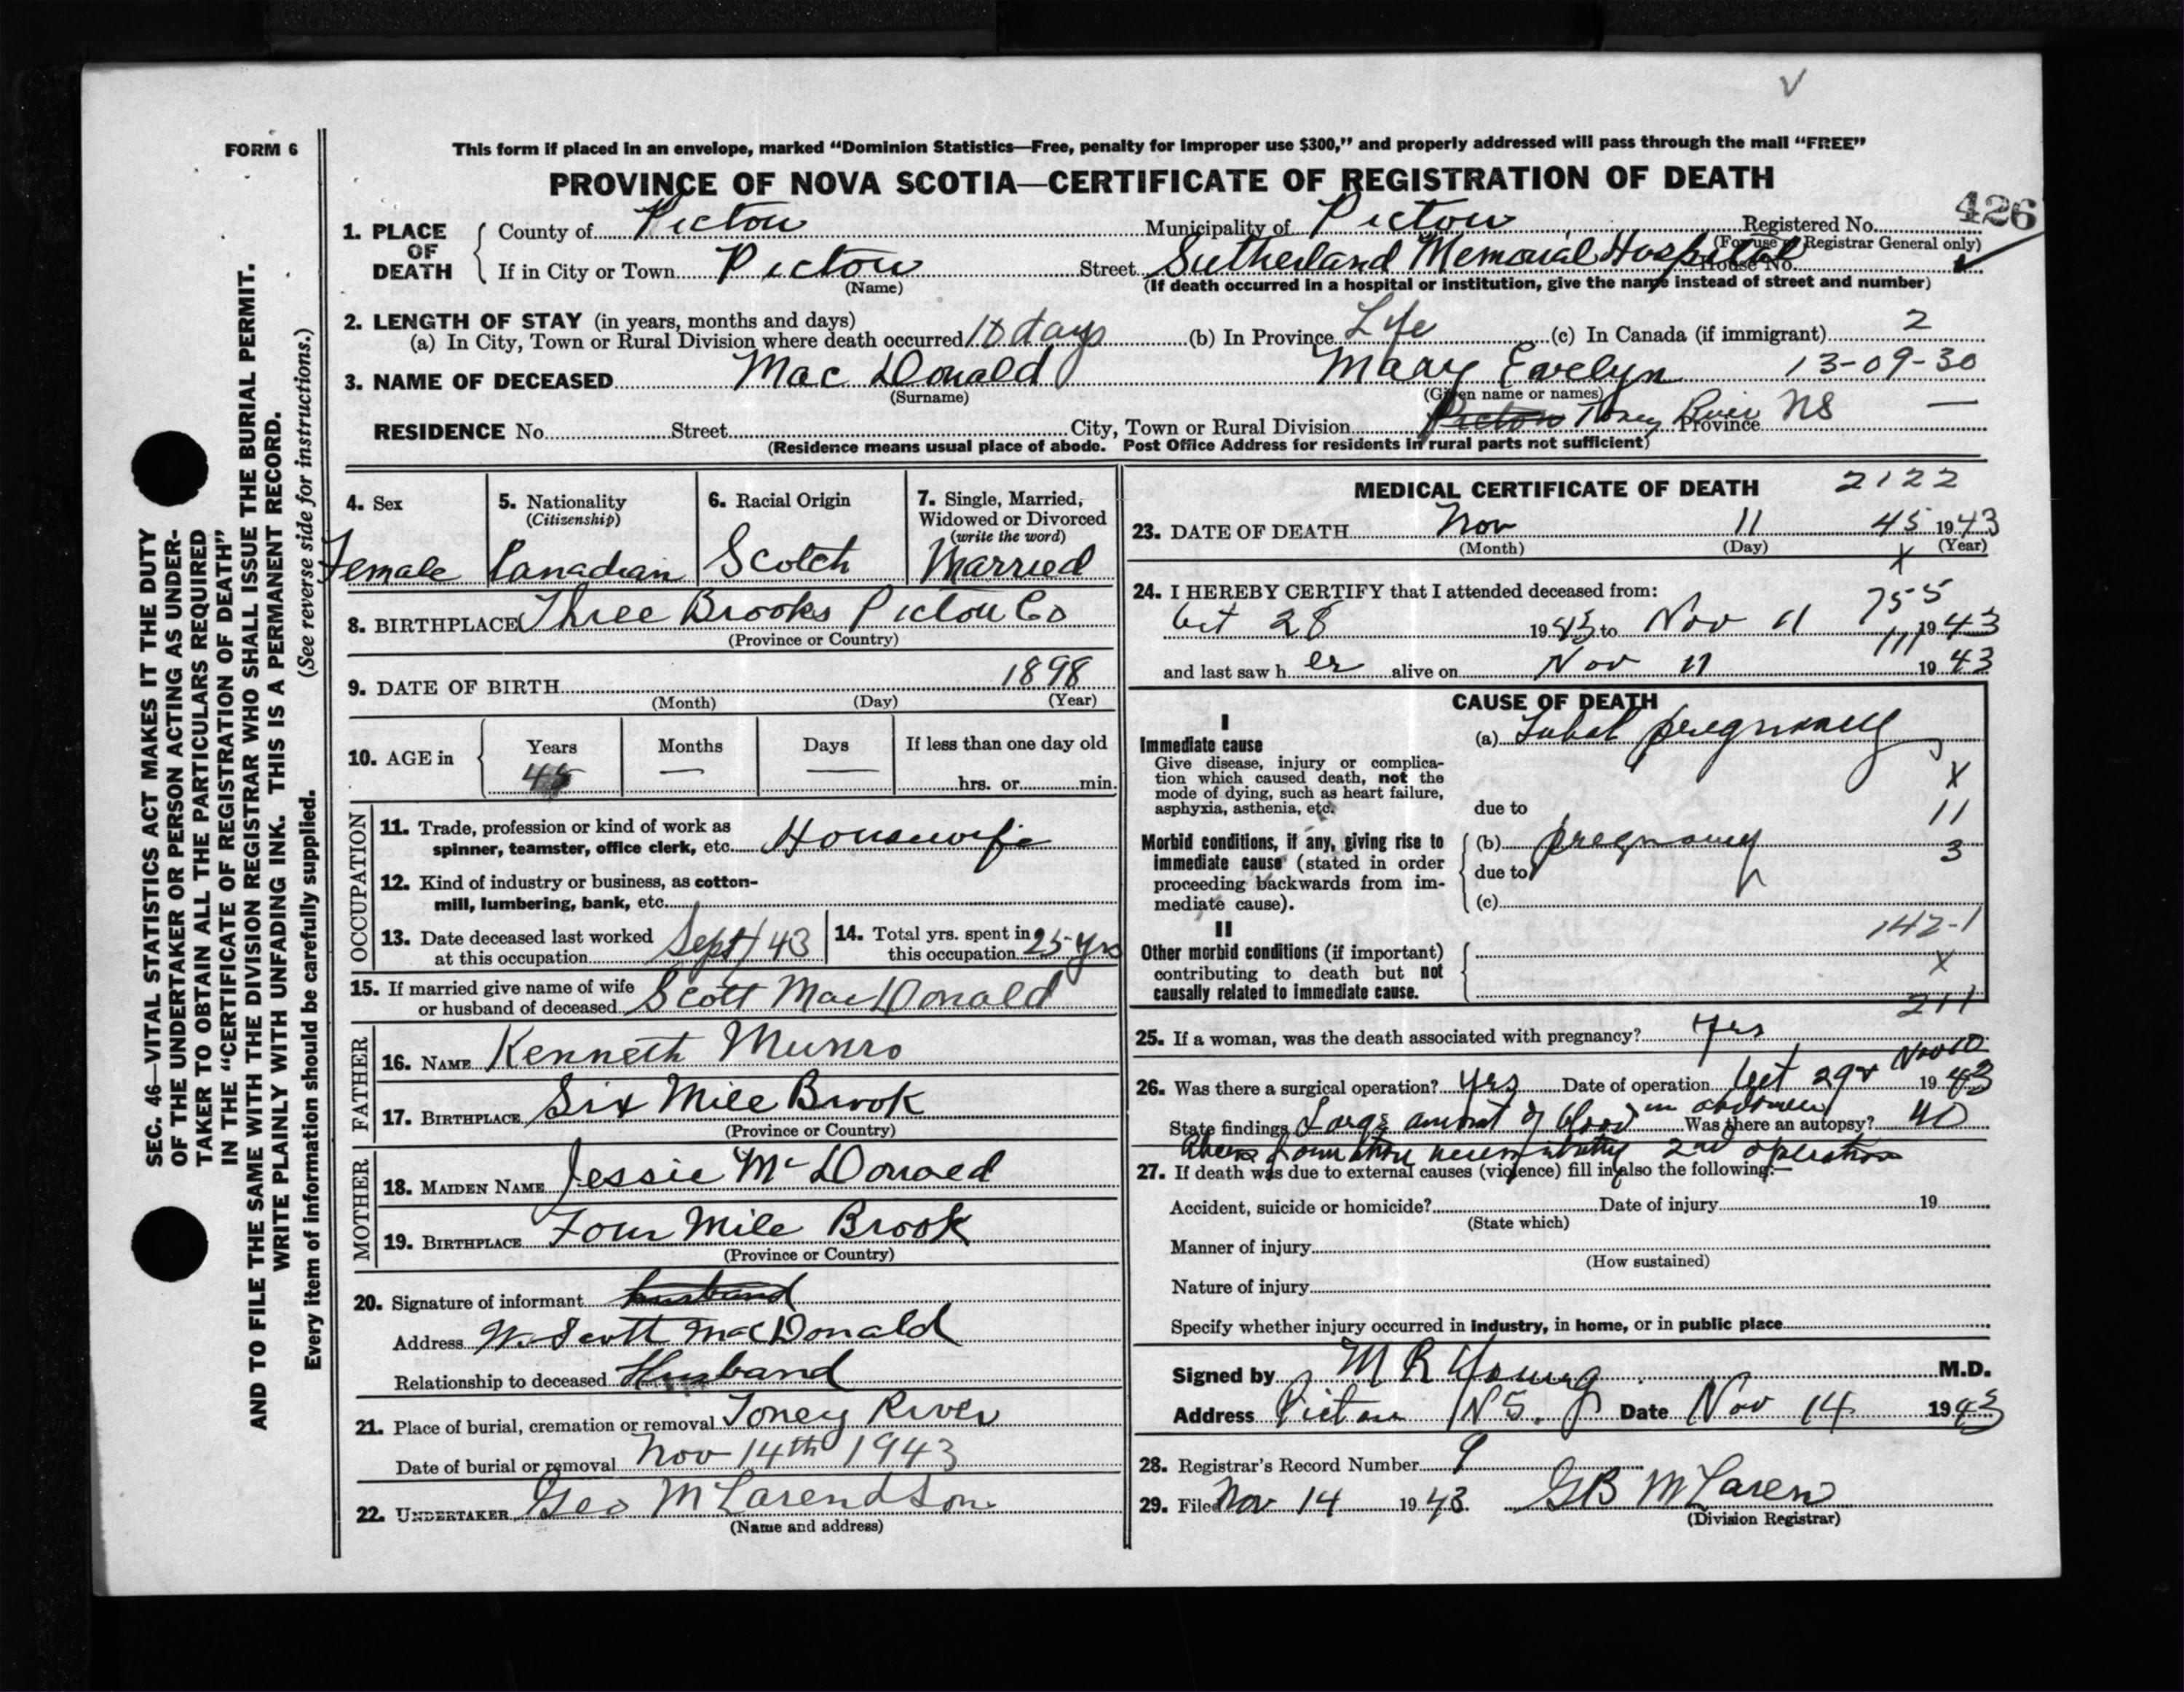 V
FORM 6
This form if placed in an envelope, marked "Dominion Statistics—Free, penalty for improper use $300," and properly addressed will pass through the mail "FREE"
PROVINCE OF NOVA SCOTIA—CERTIFICATE OF REGISTRATION OF DEATH
426
1. PLACE OF DEATH
County of Pictou Municipality of Pictou Registered No.
(For use of Registrar General only)
If in City or Town Pictou Street Sutherland Memorial Hospital House No.
(Name) (If death occurred in a hospital or institution, give the name instead of street and number)
2. LENGTH OF STAY (in years, months and days)
(a) In City, Town or Rural Division where death occurred days (b) In Province Life (c) In Canada (if immigrant) 2
3. NAME OF DECEASED Mac Donald Mary Evelyn 13-09-30
(Surname) (Given name or names)
RESIDENCE No. Street City, Town or Rural Division Pictou Toney River Province NS —
(Residence means usual place of abode. Post Office Address for residents in rural parts not sufficient)
SEC. 46—VITAL STATISTICS ACT MAKES IT THE DUTY
OF THE UNDERTAKER OR PERSON ACTING AS UNDER-
TAKER TO OBTAIN ALL THE PARTICULARS REQUIRED
IN THE "CERTIFICATE OF REGISTRATION OF DEATH"
AND TO FILE THE SAME WITH THE DIVISION REGISTRAR WHO SHALL ISSUE THE BURIAL PERMIT.
WRITE PLAINLY WITH UNFADING INK. THIS IS A PERMANENT RECORD.
Every item of information should be carefully supplied. (See reverse side for instructions.)
4. Sex
Female
5. Nationality
(Citizenship)
Canadian
6. Racial Origin
Scotch
7. Single, Married,
Widowed or Divorced
(write the word)
Married
8. BIRTHPLACE Three Brooks Pictou Co
(Province or Country)
9. DATE OF BIRTH 1898
(Month) (Day) (Year)
10. AGE in
Years Months Days If less than one day old
45 — — hrs. or min.
OCCUPATION
11. Trade, profession or kind of work as
spinner, teamster, office clerk, etc. Housewife
12. Kind of industry or business, as cotton-
mill, lumbering, bank, etc.
13. Date deceased last worked
at this occupation Sept/43
14. Total yrs. spent in
this occupation 25 yrs
15. If married give name of wife
or husband of deceased Scott MacDonald
FATHER
16. NAME Kenneth Munro
17. BIRTHPLACE Six Mile Brook
(Province or Country)
MOTHER
18. MAIDEN NAME Jessie McDonald
19. BIRTHPLACE Four Mile Brook
(Province or Country)
20. Signature of informant husband
Address W. Scott MacDonald
Relationship to deceased Husband
21. Place of burial, cremation or removal Toney River
Date of burial or removal Nov 14th 1943
22. UNDERTAKER Geo McLaren & Son
(Name and address)
MEDICAL CERTIFICATE OF DEATH 2122
23. DATE OF DEATH Nov 11 45 1943
(Month) (Day) (Year)
X
24. I HEREBY CERTIFY that I attended deceased from:
755
Oct 28 1943 to Nov 11 1943
111
and last saw her alive on Nov 11 1943
CAUSE OF DEATH
I
Immediate cause
Give disease, injury or complica-
tion which caused death, not the
mode of dying, such as heart failure,
asphyxia, asthenia, etc.
(a) Tubal pregnancy
X
due to
11
Morbid conditions, if any, giving rise to
immediate cause (stated in order
proceeding backwards from im-
mediate cause).
(b) pregnancy
3
due to
(c)
142-1
II
Other morbid conditions (if important)
contributing to death but not
causally related to immediate cause.
X
211
25. If a woman, was the death associated with pregnancy? Yes
26. Was there a surgical operation? Yes Date of operation Oct 29 & Nov 10 1943
State findings Large amount of blood in abdomen Was there an autopsy? no
2nd operation
27. If death was due to external causes (violence) fill in also the following:—
Accident, suicide or homicide? Date of injury 19
(State which)
Manner of injury
(How sustained)
Nature of injury
Specify whether injury occurred in industry, in home, or in public place
Signed by M R Young M.D.
Address Pictou N.S. Date Nov 14 1943
28. Registrar's Record Number 9
29. Filed Nov 14 1943 GB McLaren
(Division Registrar)